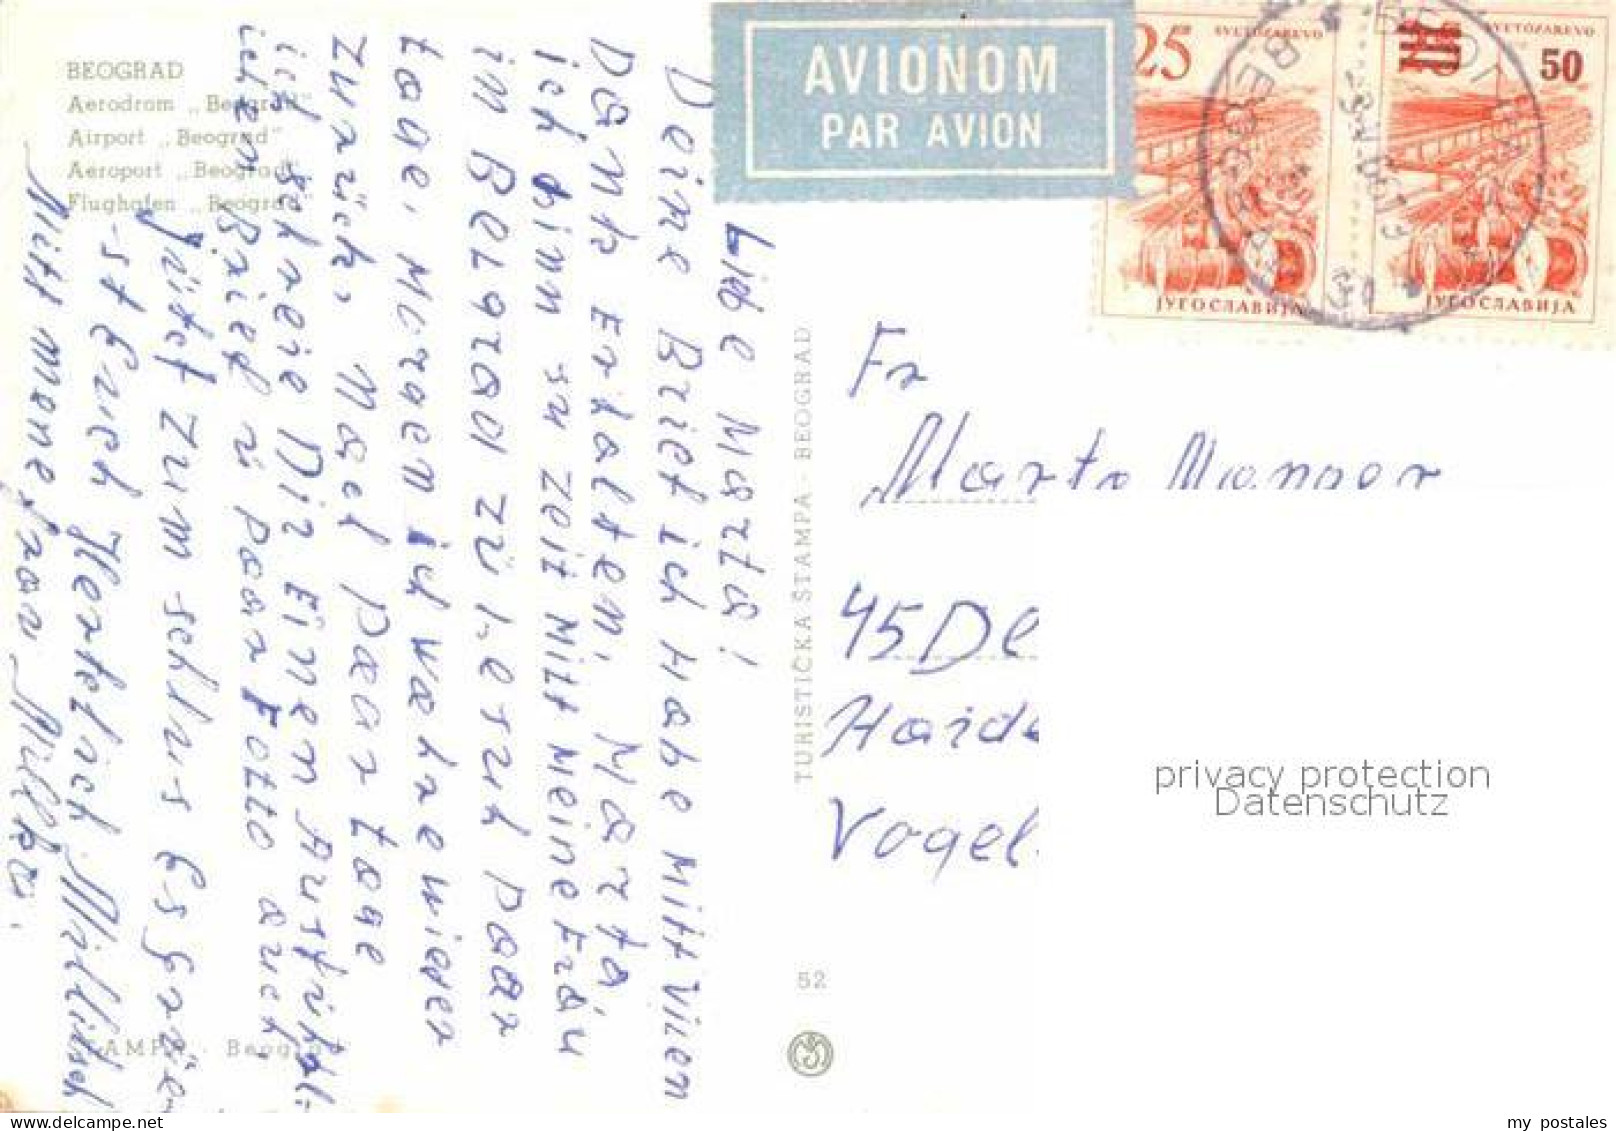 BEOGRAD
Aerodrom „Beograd"
Airport „Beograd"
Aeroport „Beograd"
Flughafen „Beograd"
AVIONOM
PAR AVION
25
SVETOZAREVO
ЈУГОСЛАВИЈА
SVETOZAREVO
50
ЈУГОСЛАВИЈА
Libe Marta!
Deine Brief ich Habe Mitt Vilem
Dank Erhalten, Marta
ich binn zu Zeit Mitt Meine Frau
im Belgrad zü besuh paar
tage, Morgen ich wahre wieder
zurück, Nach paar tage
ich schreie Dir Einen Ausfühl-
ichen Brief ü paar Fotto auch,
Zum schlus Es Grüe-
st Euch Herzlich Militsch
Mitt meine frau Milka.
TURISTIČKA ŠTAMPA - BEOGRAD
52
Fr
Marta Manser
45 De
Haide
Vogel
privacy protection
Datenschutz
my postales